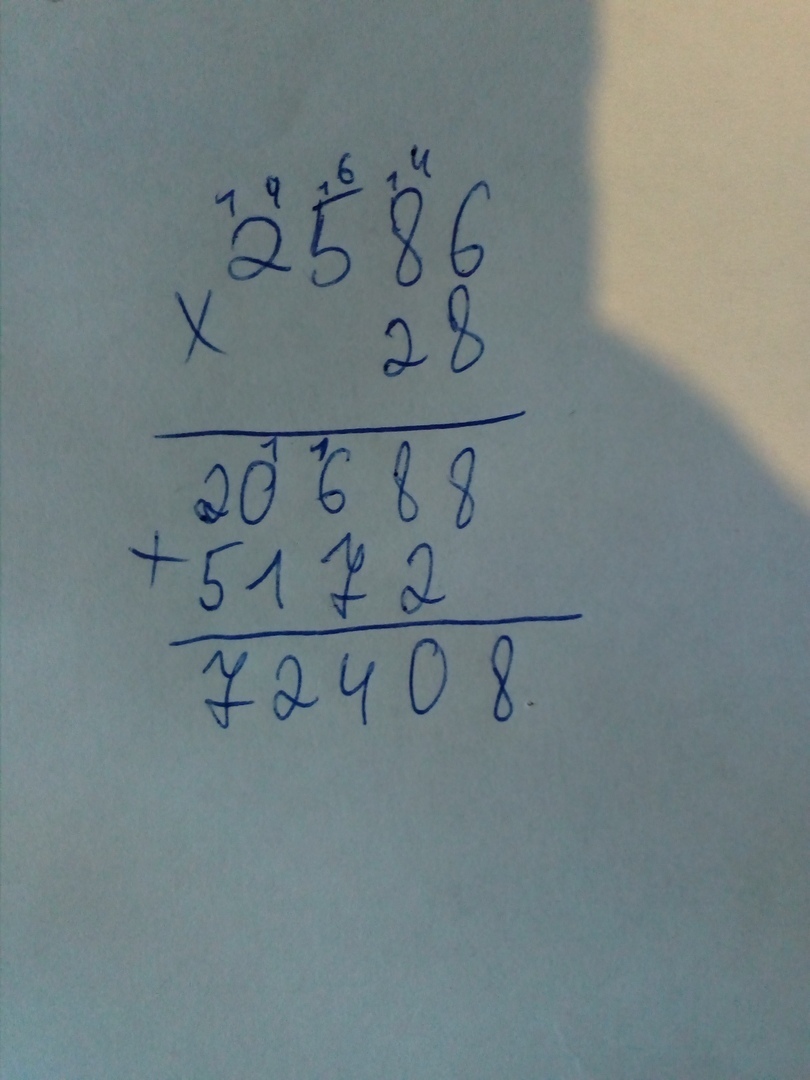 1 4 1 6 1 4
2 5 8 6
× 2 8
1 1
2 0 6 8 8
+ 5 1 7 2
7 2 4 0 8.